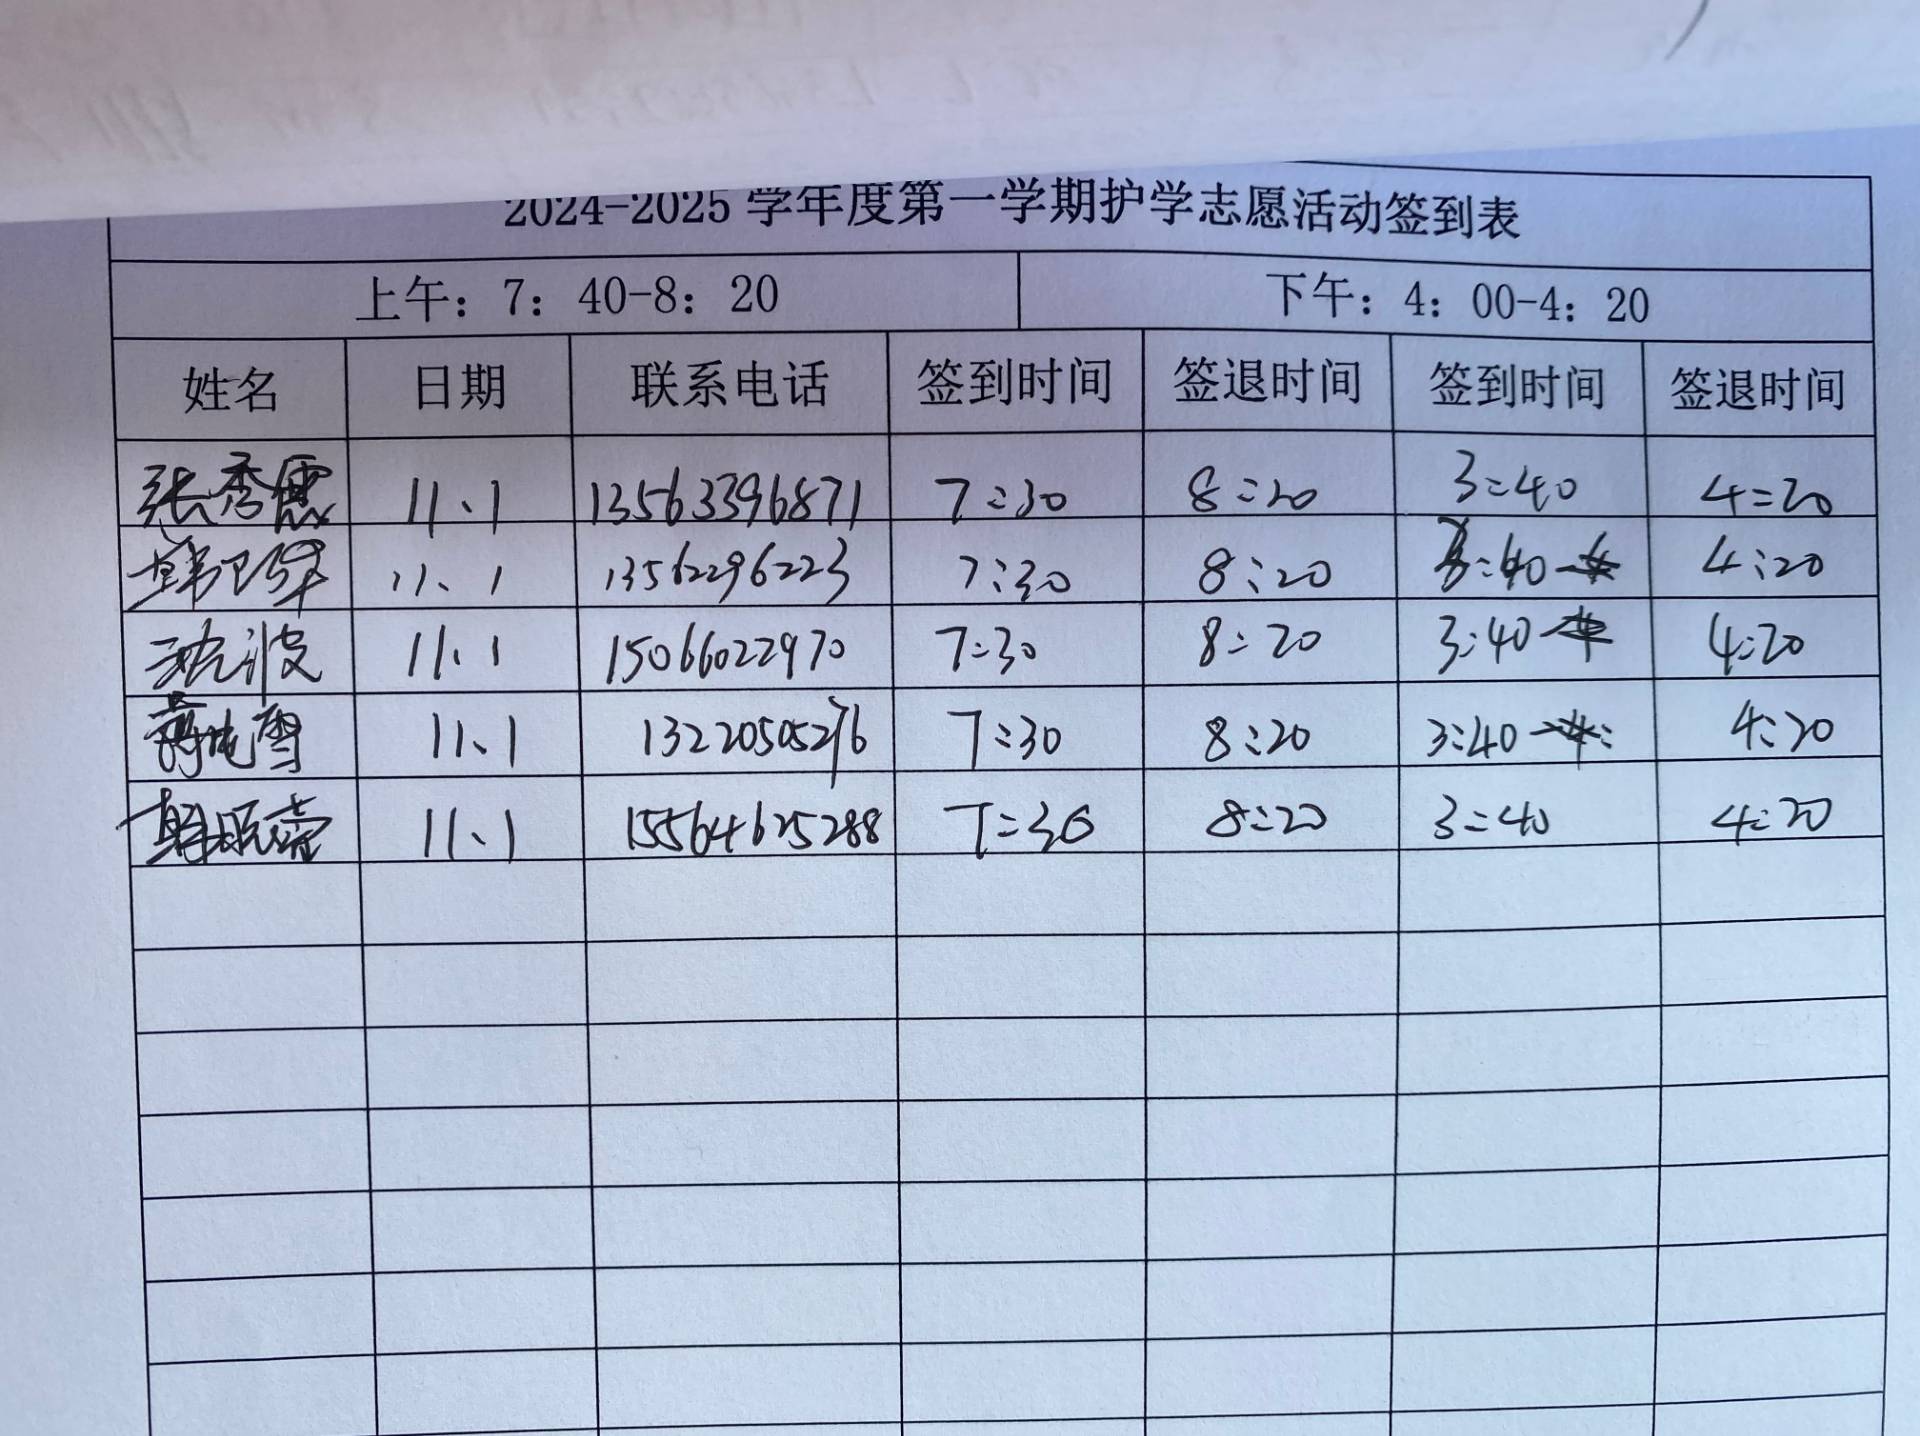 2024-2025 学年度第一学期护学志愿活动签到表
上午：7：40-8：20 下午：4：00-4：20
姓名 日期 联系电话 签到时间 签退时间 签到时间 签退时间
张秀 11、1 13563396871 7:30 8:20 3:40 4:20
11、1 13562296223 7:30 8:20 3:40 4:20
沈波 11、1 15066022970 7:30 8:20 3:40 4:20
雪 11、1 13220505276 7:30 8:20 3:40 4:20
11、1 15564625288 7:30 8:20 3:40 4:20